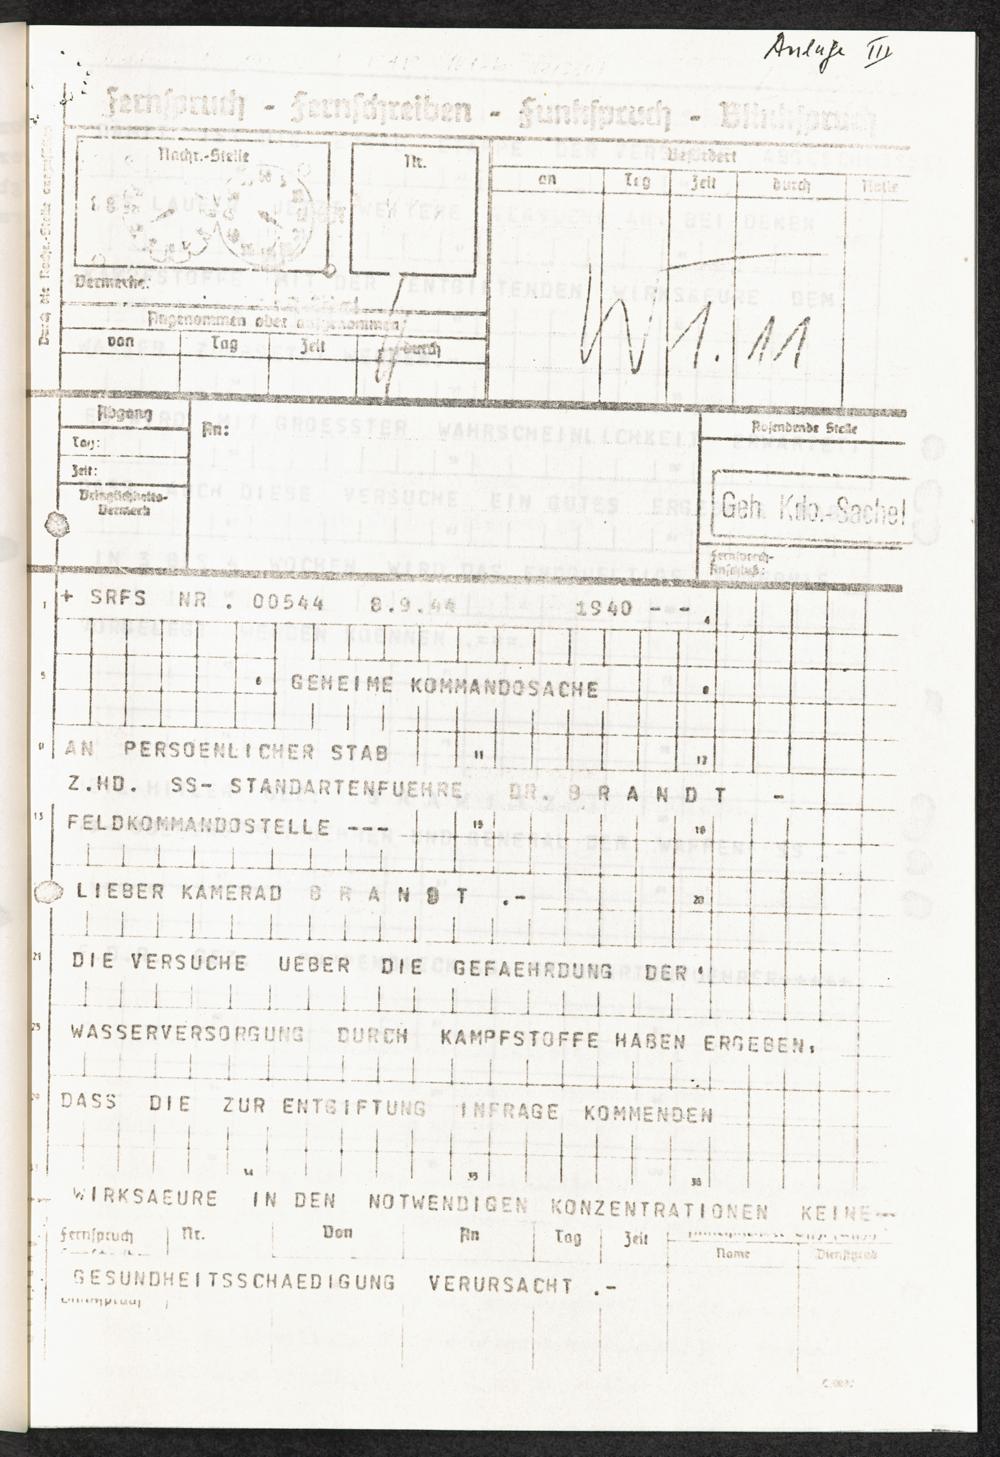 Anlage III
Fernspruch - Fernschreiben - Funkspruch - Blinkspruch
Nachr.-Stelle
Nr.
Befördert
an
Tag
Zeit
durch
Rolle
Durch die Nachr.-Stelle auszufüllen
Vermerke:
Angenommen oder aufgenommen
von
Tag
Zeit
durch
W 1. 11
Abgang
Tag:
Zeit:
Dringlichkeits-
Vermerk
An:
Absendende Stelle
Geh. Kdo.-Sache!
Fernsprech-
Anschluß:
+ SRFS NR . 00544 8.9.44 1940 - -
GEHEIME KOMMANDOSACHE
AN PERSOENLICHER STAB
Z.HD. SS- STANDARTENFUEHRE DR. B R A N D T -
FELDKOMMANDOSTELLE ---
LIEBER KAMERAD B R A N D T .-
DIE VERSUCHE UEBER DIE GEFAEHRDUNG DER
WASSERVERSORGUNG DURCH KAMPFSTOFFE HABEN ERGEBEN,
DASS DIE ZUR ENTGIFTUNG INFRAGE KOMMENDEN
WIRKSAEURE IN DEN NOTWENDIGEN KONZENTRATIONEN KEINE--
Fernspruch
Nr.
Von
An
Tag
Zeit
Name
Dienstgrad
GESUNDHEITSSCHAEDIGUNG VERURSACHT .-